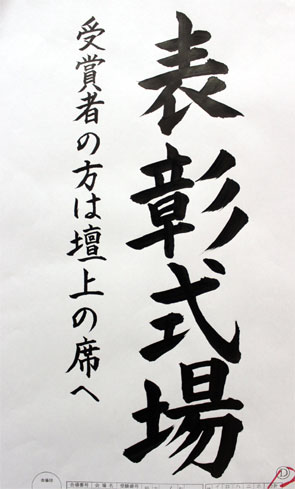 表彰式場
受賞者の方は壇上の席へ